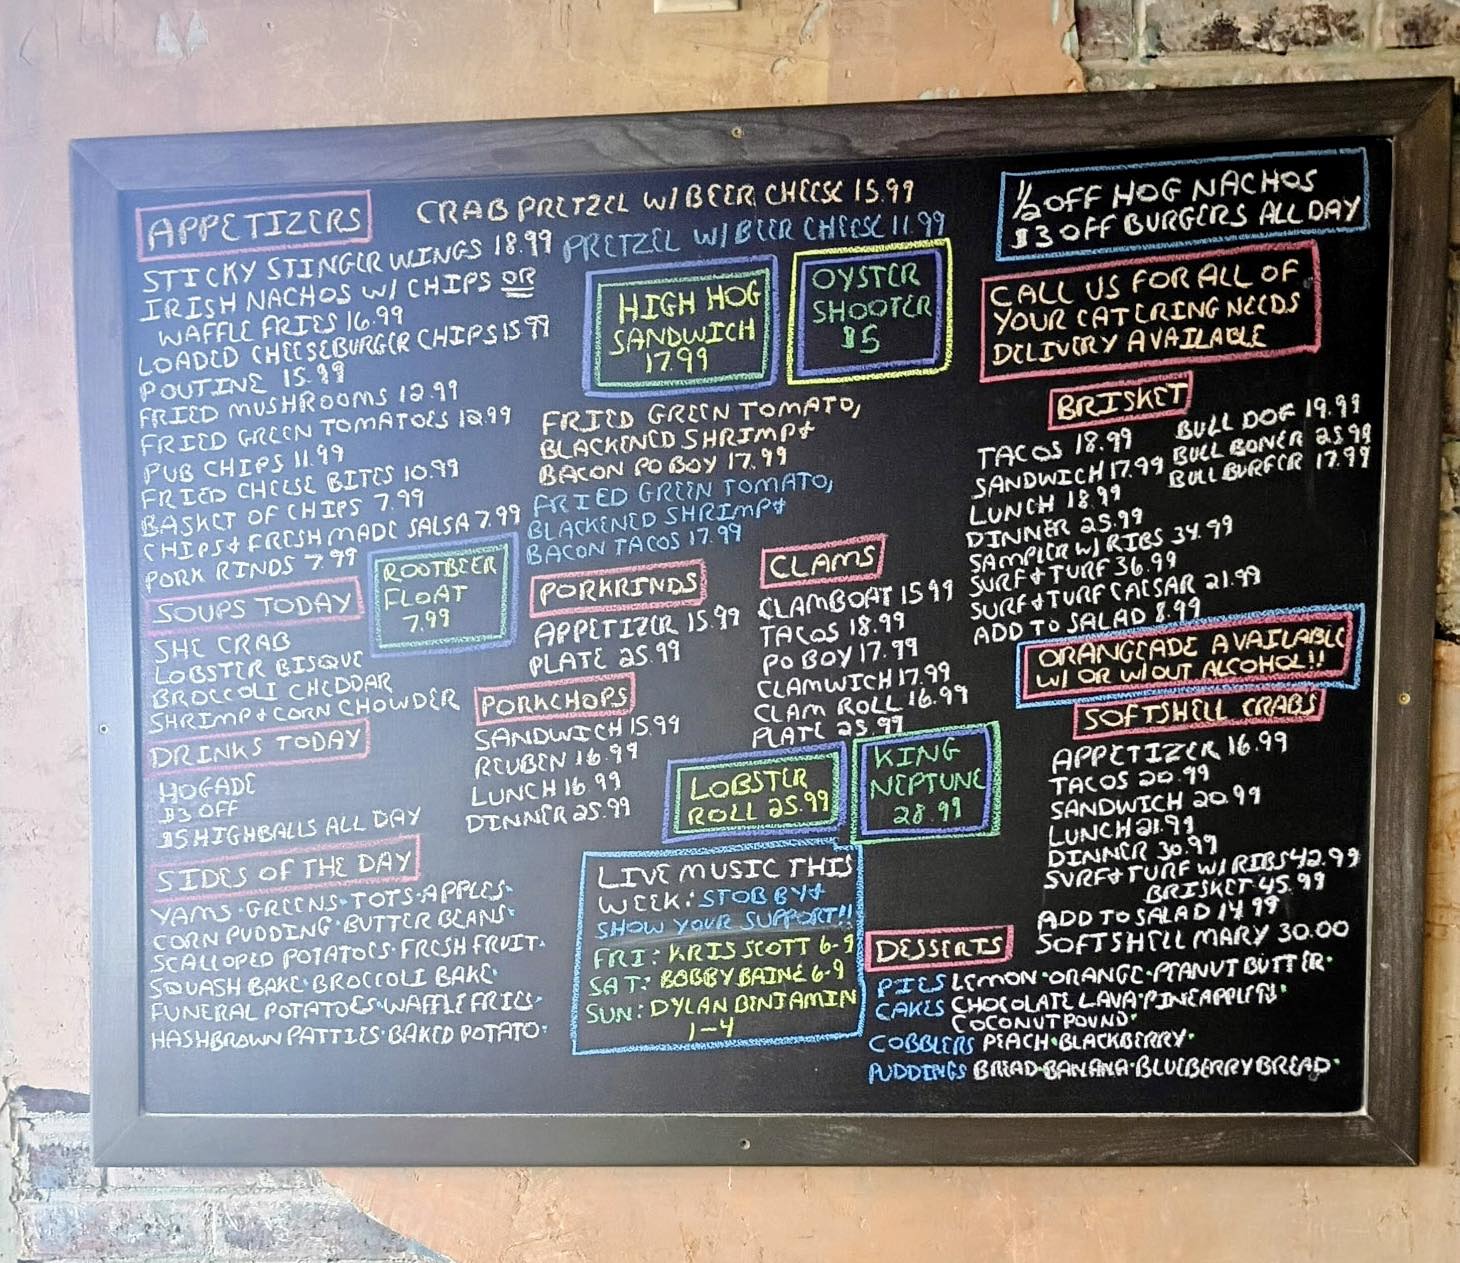 APPETIZERS
CRAB PRETZEL W/ BEER CHEESE 15.99
PRETZEL W/ BEER CHEESE 11.99
STICKY STINGER WINGS 18.99
IRISH NACHOS W/ CHIPS OR
WAFFLE FRIES 16.99
LOADED CHEESEBURGER CHIPS 15.99
POUTINE 15.99
FRIED MUSHROOMS 12.99
FRIED GREEN TOMATOES 12.99
PUB CHIPS 11.99
FRIED CHEESE BITES 10.99
BASKET OF CHIPS 7.99
CHIPS + FRESH MADE SALSA 7.99
PORK RINDS 7.99
SOUPS TODAY
SHE CRAB
LOBSTER BISQUE
BROCCOLI CHEDDAR
SHRIMP + CORN CHOWDER
DRINKS TODAY
HOGADE
$3 OFF
$5 HIGHBALLS ALL DAY
SIDES OF THE DAY
YAMS · GREENS · TOTS · APPLES ·
CORN PUDDING · BUTTER BEANS ·
SCALLOPED POTATOES · FRESH FRUIT ·
SQUASH BAKE · BROCCOLI BAKE ·
FUNERAL POTATOES · WAFFLE FRIES ·
HASHBROWN PATTIES · BAKED POTATO ·
ROOTBEER
FLOAT
7.99
HIGH HOG
SANDWICH
17.99
OYSTER
SHOOTER
$5
FRIED GREEN TOMATO,
BLACKENED SHRIMP +
BACON PO BOY 17.99
FRIED GREEN TOMATO,
BLACKENED SHRIMP +
BACON TACOS 17.99
PORKRINDS
APPETIZER 15.99
PLATE 25.99
PORKCHOPS
SANDWICH 15.99
REUBEN 16.99
LUNCH 16.99
DINNER 25.99
CLAMS
CLAMBOAT 15.99
TACOS 18.99
PO BOY 17.99
CLAMWICH 17.99
CLAM ROLL 16.99
PLATE 25.99
LOBSTER
ROLL 25.99
KING
NEPTUNE
28.99
LIVE MUSIC THIS
WEEK: STOB BY +
SHOW YOUR SUPPORT!!
FRI: KRIS SCOTT 6-9
SAT: BOBBY BAINE 6-9
SUN: DYLAN BENJAMIN
1-4
1/2 OFF HOG NACHOS
$3 OFF BURGERS ALL DAY
CALL US FOR ALL OF
YOUR CATERING NEEDS
DELIVERY AVAILABLE
BRISKET
TACOS 18.99
SANDWICH 17.99
LUNCH 18.99
DINNER 25.99
SAMPLER W/ RIBS 34.99
SURF + TURF 36.99
SURF + TURF CAESAR 21.99
ADD TO SALAD 8.99
BULL DOF 19.99
BULL BONER 25.99
BULL BURFER 17.99
ORANGEADE AVAILABLE
W/ OR W/OUT ALCOHOL!!
SOFTSHELL CRABS
APPETIZER 16.99
TACOS 20.99
SANDWICH 20.99
LUNCH 21.99
DINNER 30.99
SURF + TURF W/ RIBS 42.99
BRISKET 45.99
ADD TO SALAD 14.99
SOFTSHELL MARY 30.00
DESSERTS
PIES LEMON · ORANGE · PEANUT BUTTER ·
CAKES CHOCOLATE LAVA ·
COCONUT POUND ·
COBBLERS PEACH · BLACKBERRY ·
PUDDINGS BREAD · BANANA · BLUEBERRY BREAD ·